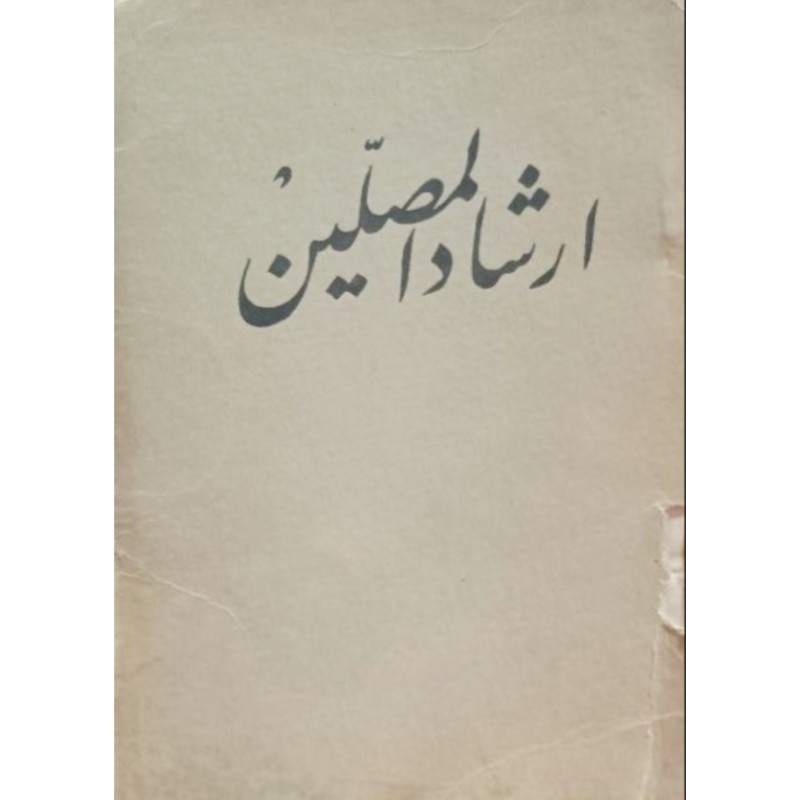 ارشاد المصلّین